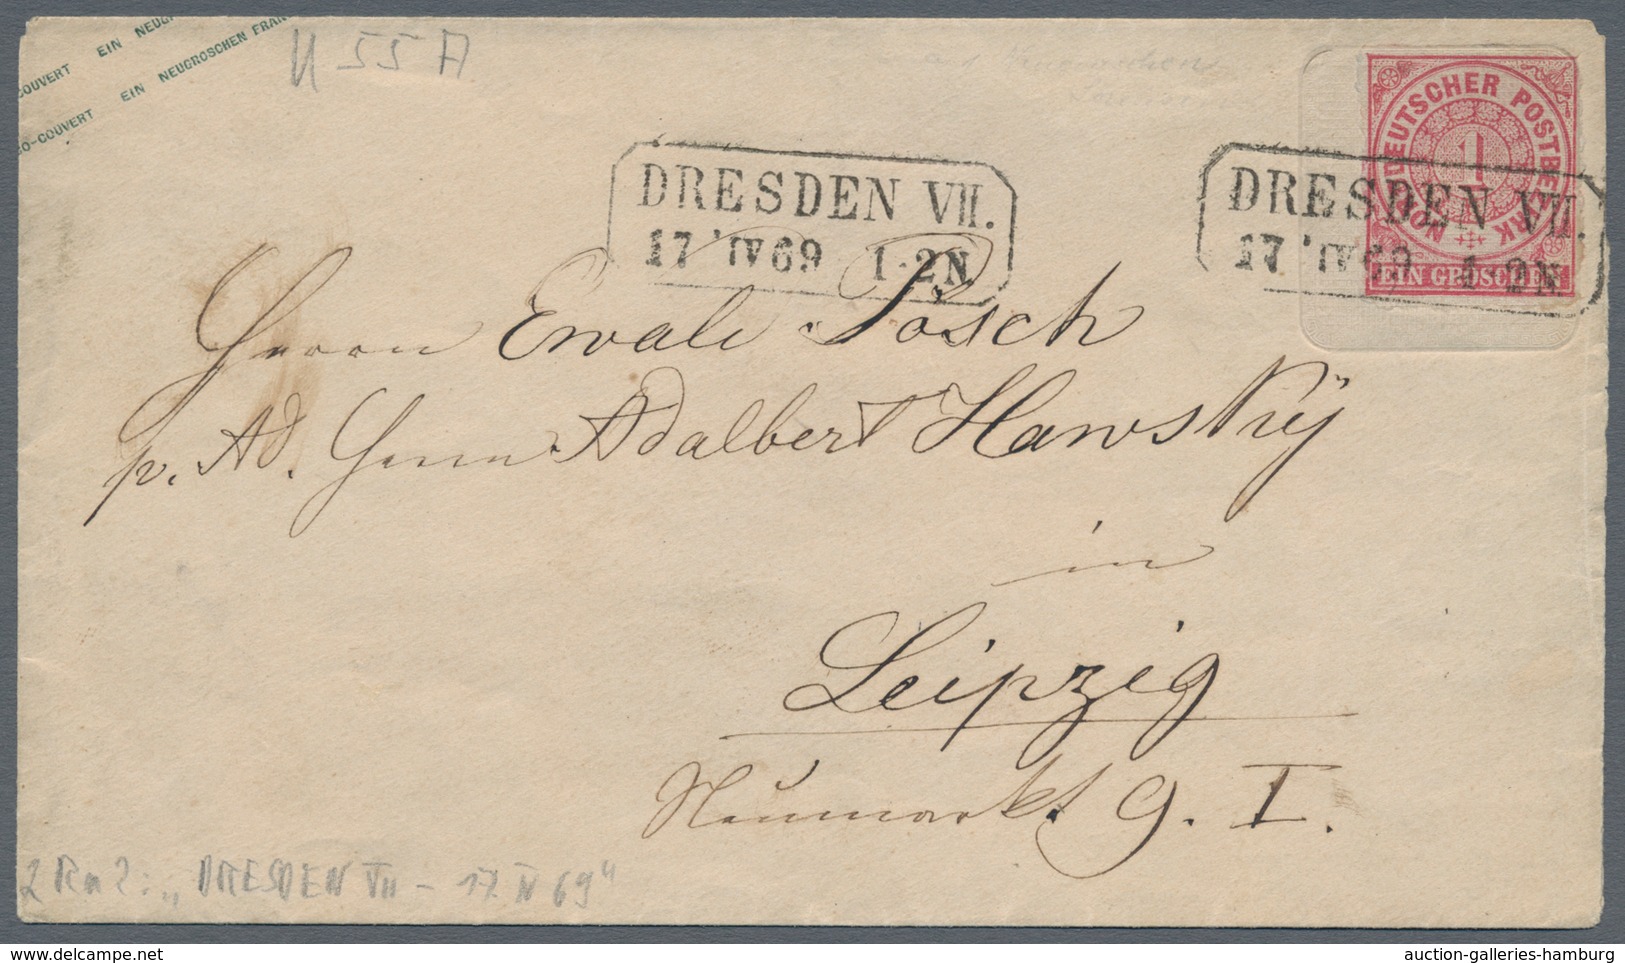 EIN NEUG
COUVERT EIN NEUGROSCHEN FRAN
CO-COUVERT
U 55 A
NORDDEUTSCHER POSTBEZIRK
1
EIN GROSCHEN
DRESDEN VII.
17 IV 69 1-2N
DRESDEN VII.
17 IV 69 1-2N
Herrn Ewald Posch
p. Ad. Herrn Adalbert Hawskÿ
in
Leipzig
Neumarkt 9. I.
2 Ra2: „DRESDEN VII - 17. IV 69"
auction-galleries-hamburg